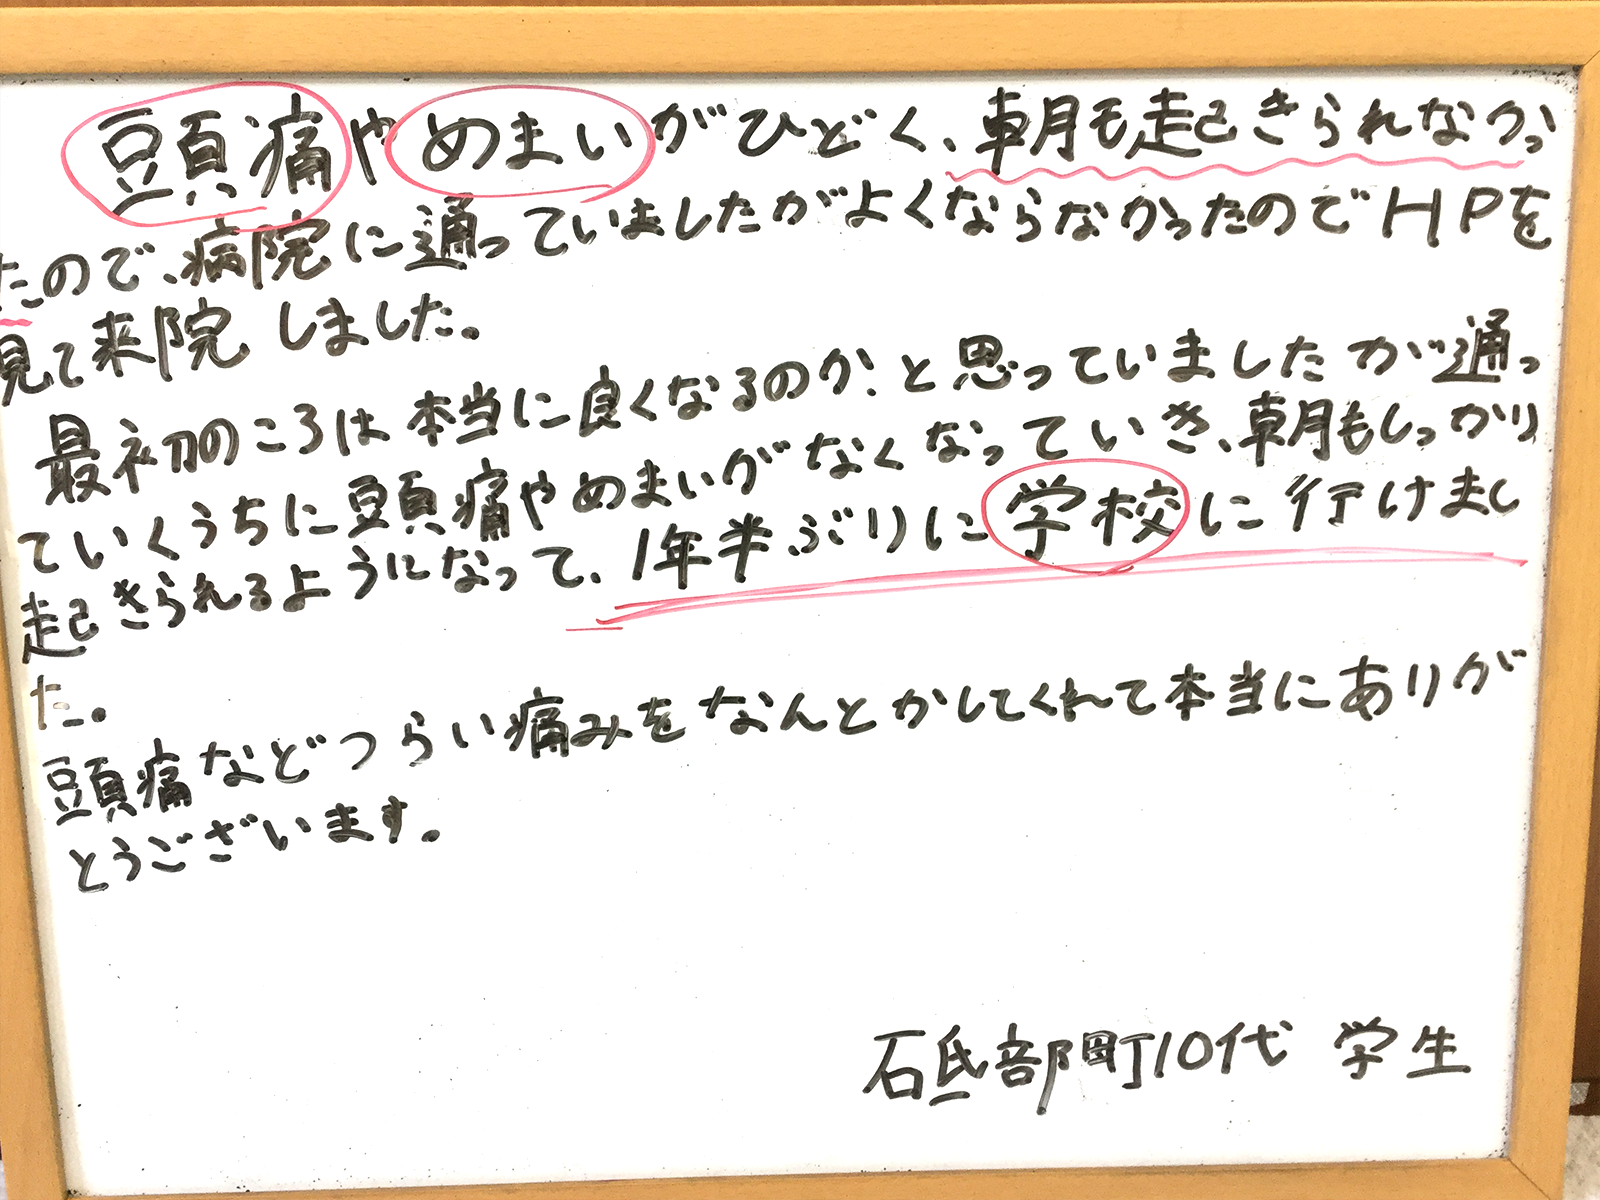 頭痛やめまいがひどく、朝も起きられなかっ
たので、病院に通っていましたがよくならなかったのでHPを
見て来院しました。
最初のころは本当に良くなるのか?と思っていましたが通っ
ていくうちに頭痛やめまいがなくなっていき、朝もしっかり
起きられるようになって、1年半ぶりに学校に行けまし
た。
頭痛などつらい痛みをなんとかしてくれて本当にありが
とうございます。
石砥部町10代 学生